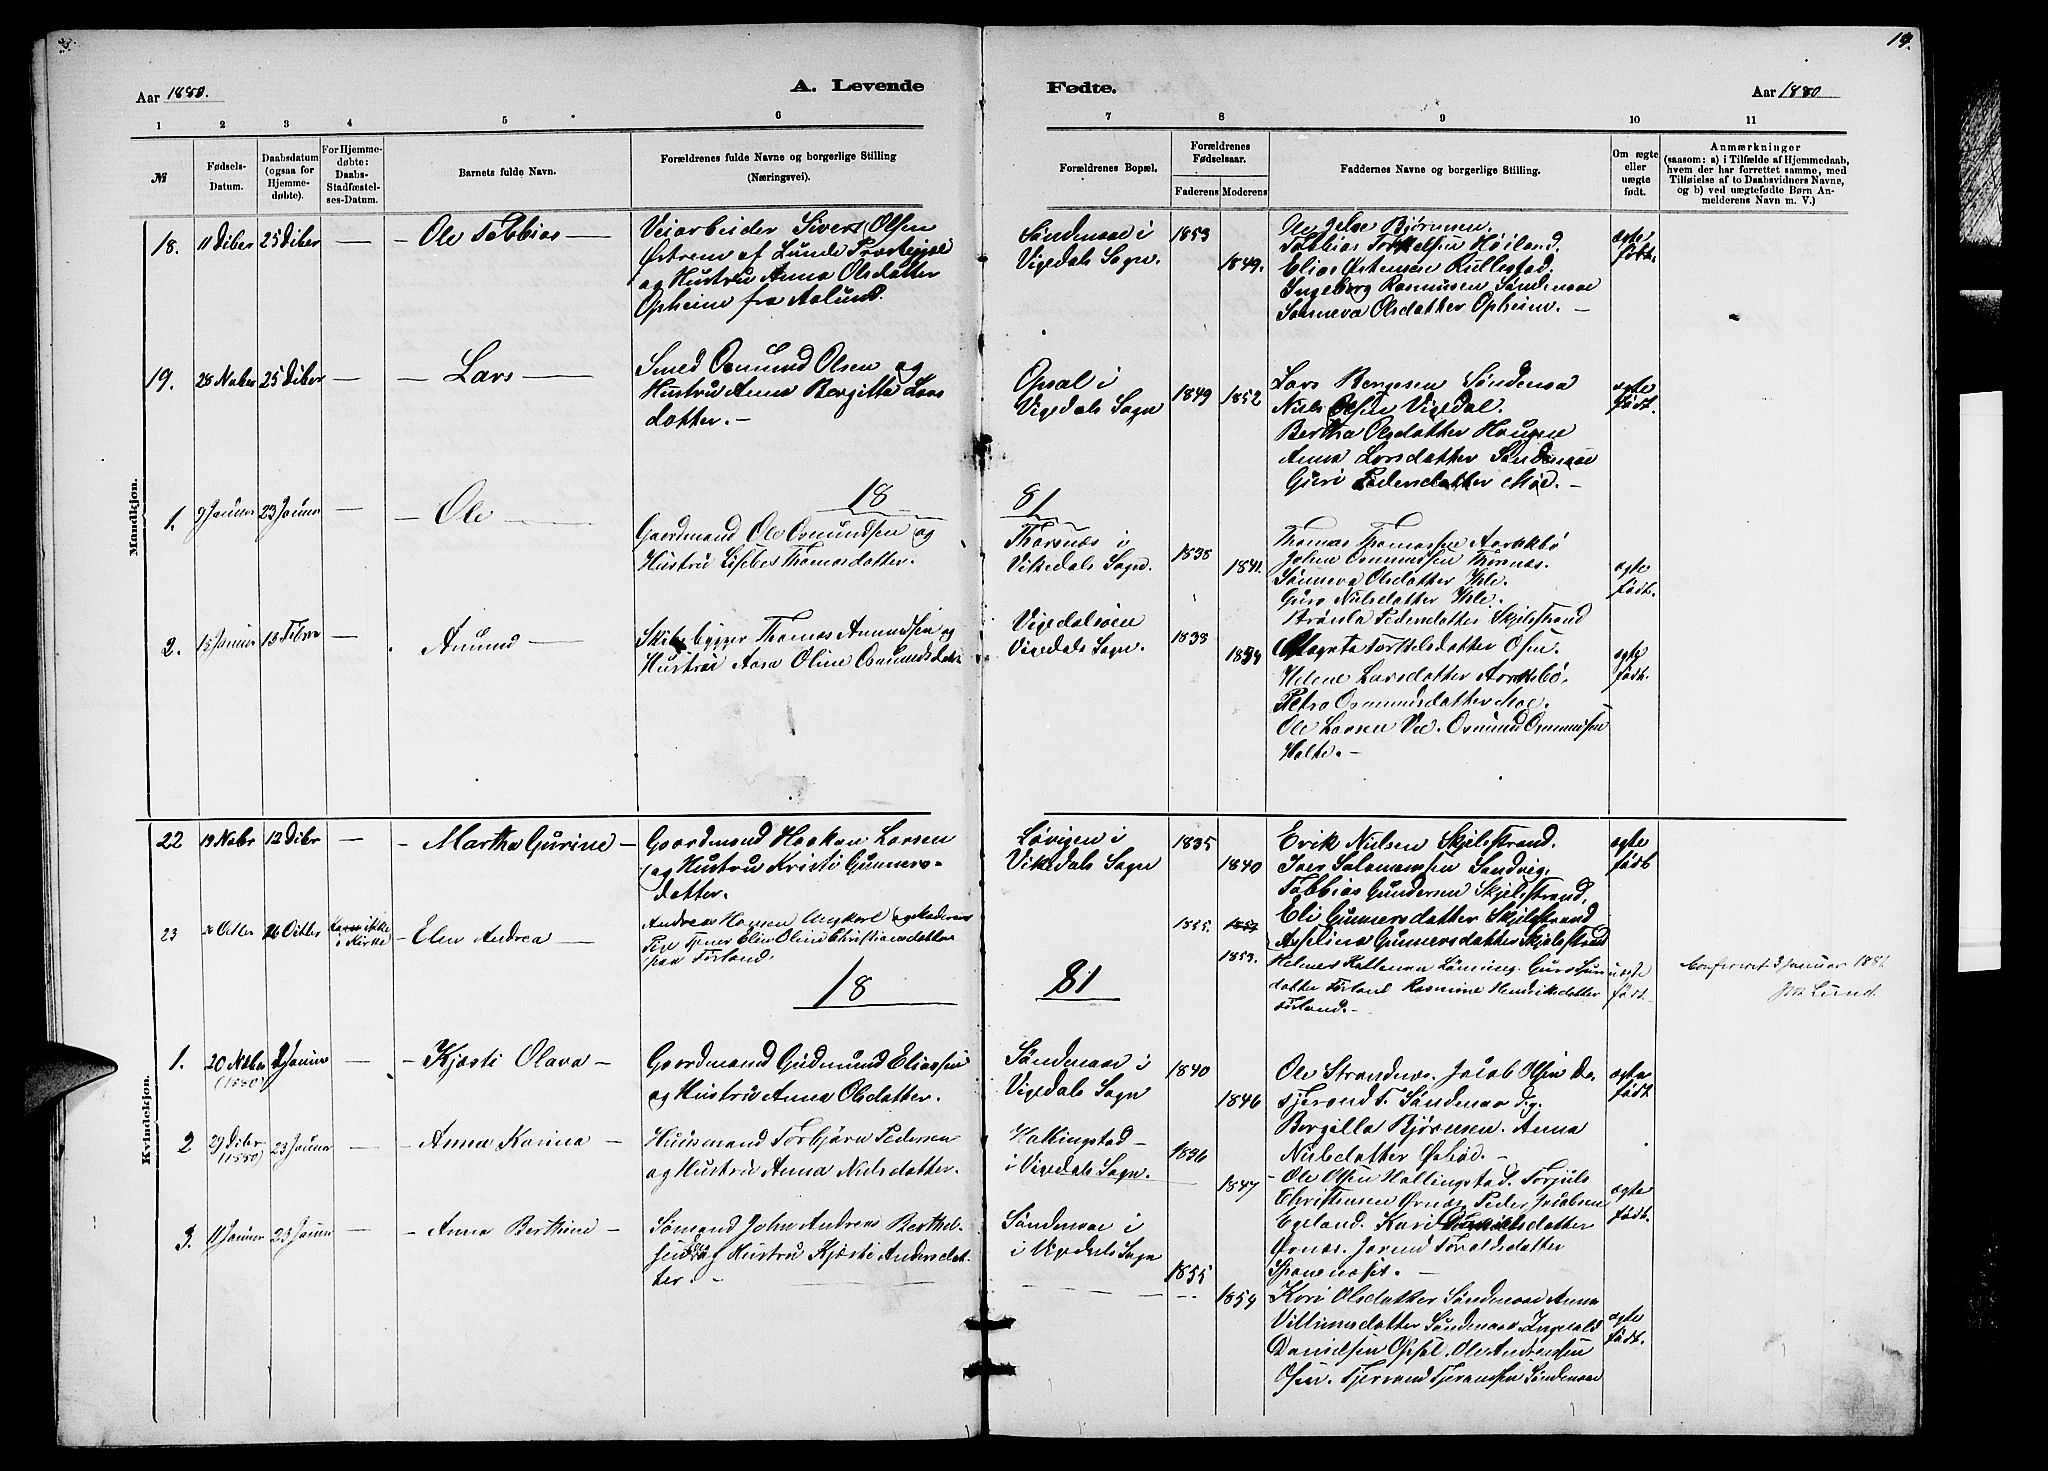 19.
Aar 1880.
A. Levende
Fødte.
Aar 1880
1 2 3 4 5 6 7 8 9 10 11
№
Fødsels-
Datum.
Daabsdatum
(ogsaa for
Hjemme-
døbte).
For Hjemme-
døbte:
Daabs-
Stadfæstel-
ses-Datum.
Barnets fulde Navn.
Forældrenes fulde Navne og borgerlige Stilling
(Næringsvei).
Forældrenes Bopæl,
Forældrenes
Fødselsaar.
Faderens Moderens
Faddernes Navne og borgerlige Stilling.
Om ægte
eller
uægte
født.
Anmærkninger
(saasom: a) i Tilfælde af Hjemmedaab,
hvem der har forrettet samme, med
Tilføielse af to Daabsvidners Navne,
og b) ved uægtefødte Børn An-
melderens Navn m. V.)
Mandkjøn.
18. 11 Dcber 25 Dcber — — Ole Tobbias —
Veiarbeider Sivert Olsen
Østrem af Lunde Præstegje
og Hustru Anna Olsdatter
Opheim fra Aalund.
Søndenaae i
Vigedals Sogn.
1853
1849.
Bjørnsen.
Tobbias Torkelsen Høiland.
Elias Østensen Rullestad.
Ingeborg Rasmusen Søndenaae
Sanneva Olsdatter Opheim. —
ægte
født.
19. 28 Nober 25 Dcber — — Lars —
Smed Osmund Olsen og
Hustru Anna Bergitta Lars
datter. —
Opsal i
Vigedals Sogn
1849
1852
Lars Bergesen Søndenaa
Niels Olsen Vigedal.
Bertha Olsdatter Hougen
Anna Larsdatter Søndenaae
Guri Pedersdatter Moe. —
ægte
født.
18
81
1. 9 Januar 23 Januar — — Ole —
Gaardmand Ole Osmundsen og
Hustru Lisebet Thomasdatter.
Thorsnæs i
Vikedals Sogn.
1838
1841.
Thomas Thomassen Aarekbø
Johan Osmundsen Thorsnæs.
Sønneva Olsdatter Hele.
Guro Nielsdatter Hele.
Pedersdatter Skjelstrand
ægte
født.
2. 15 Januar 13 Febr — Amund —
Skibsbygger Thomas Amundsen og
Hustru Aasa Oline Osmundsdatter
Vigedalsøen
Vigedals Sogn.
1838
1834
Magreta Torkelsdatter Osen.
Helene Larsdatter Aarekbø.
Petra Osmundsdatter Moe.
Ole Larsen Vee. Osmund Osmundsen
Halte. —
ægte
født.
Kvindekjøn.
22 19 Nobr 12 Dcbr — — Martha Gurine —
Gaardmand Haakon Larsen
og Hustru Kristi Gunners-
datter.
Løvigen i
Vikedals Sogn
1835
1840
Erik Nielsen Skjelstrand.
Iver Salamonsen Sandvig.
Tobbias Gundersen Skjelstrand.
Eli Gunnersdatter Skjelstrand
Asseline Gunnersdatter Skjelstrand
ægte
født
23 26 Octbr — Elen Andrea —
Andreas Hansen Ungkarl og
Pige Elen Oline Christiansdatter
paa Førland.
1855.
1853.
Førland Rasmine Henriksdatter
Førland. —
født
Confereret 3 Januar 1881
Lund.
18
81
1. 20 Nober
(1880)
2 Januar — — Kjæsti Olava —
Gaardmand Gudmund Eliassen
og Hustru Anna Olsdatter.
Søndenaae i
Vigedals Sogn
1840
1846
Ole Strandenæs. Jacob Olsen Do.
Tjerand T. Søndenaae Pig.
Bergilla Bjørnsen. Anna
Nielsdatter Øsbød. —
ægte
født.
2 29 Dcber
(1880)
23 Januar — Anna Karina —
Huusmand Torbjørn Pedersen
og Hustru Anna Nielsdatter.
Hallingstad —
i Vigedals Sogn.
1836
1847
— Ole Olsen Hallingstad. Torjuls
Christensen Ørnæs Peder Jacobsen
Egeland. Kari
Ørnæs. Jorund Toraldsdatter
ægte
født.
3. 11 Januar 23 Januar — — Anna Berthine —
Sømand John Andreas Berthel-
sen og Hustru Kjæsti Andersdat-
ter. —
Søndenaae i
i Vigedals Sogn
1855
1854
Kari Olsdatter Søndenaae Anna
Villumsdatter Søndenaae Ingevald
Danielsen Opsal. Ole Andreassen
Osen. Tjerand Tjerandsen Søndenaae
ægte
født.